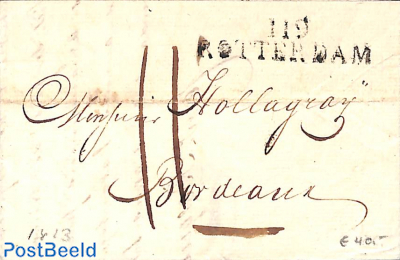 119
ROTTERDAM
11
Monsieur Hollagray
Bordeaux
1813
€ 40.-
PostBeeld